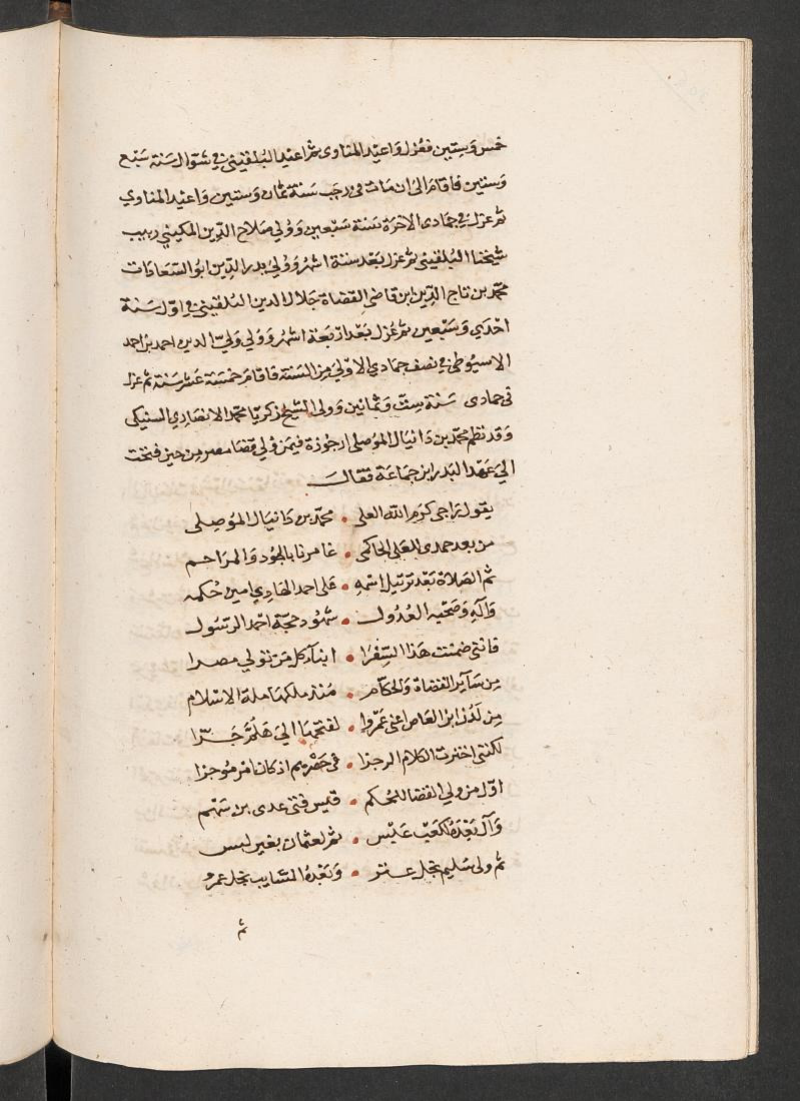 خمس وستين فعزل واعيد المناوى ثم اعيد البلقيني في شوال سنة سبع
وستين فاقام الى ان مات في رجب سنة ثمان وستين واعيد المناوي
ثم عزل في جمادى الاخرة سنة سبعين وولي صلاح الدين المكيني ربيب
شيخنا البلقيني ثم عزل بعد ستة اشهر وولي بدر الدين ابو السعادات
محمد بن تاج الدين ابن قاضي القضاة جلال الدين البلقيني في اول سنة
احدى وسبعين ثم عزل بعد اربعة اشهر وولي ولي الدين احمد بن احمد
الاسيوطي في نصف جمادي الاولي من السنة فاقام خمسة عشر سنة ثم عزل
في جمادى سنة ست وثمانين وولى الشيخ زكريا محمد الانصاري السنيكي
وقد نظم محمد بن دانيال الموصلي ارجوزة فيمن ولي قضا مصر من حين فتحت
الي عهد البدر ابن جماعة فقال
يقول راجى كرم الله العلى • محمد بن دانيال الموصلى
من بعد حمدى للعلي الحاكم • غامرنا بالجود والمراحم
ثم الصلاة بعد ترتيل اسمه • على احمد الهادي امين حكمه
وآله وصحبه العدول • شهود حجة احمد الرسول
فانني ضمنت هذا السفرا • ابنآء كل من تولي مصرا
من سآير القضاة والحكام • منذ ملكها ملة الاسلام
من لدن ابن العاص اعني عمروا • لفتحها الي هلم جرّا
لكنني اخترت الكلام الرجزا • في حصرهم اذ كان امر موجزا
اول من ولي القضا للحكم • قيس فتى عدى بن سهم
وآل بعده لكعب عبس • ثم لعثمان بغير لبس
ثم ولى سليم نجل عنتر • وبعده السايب نجل عمرو
ثم